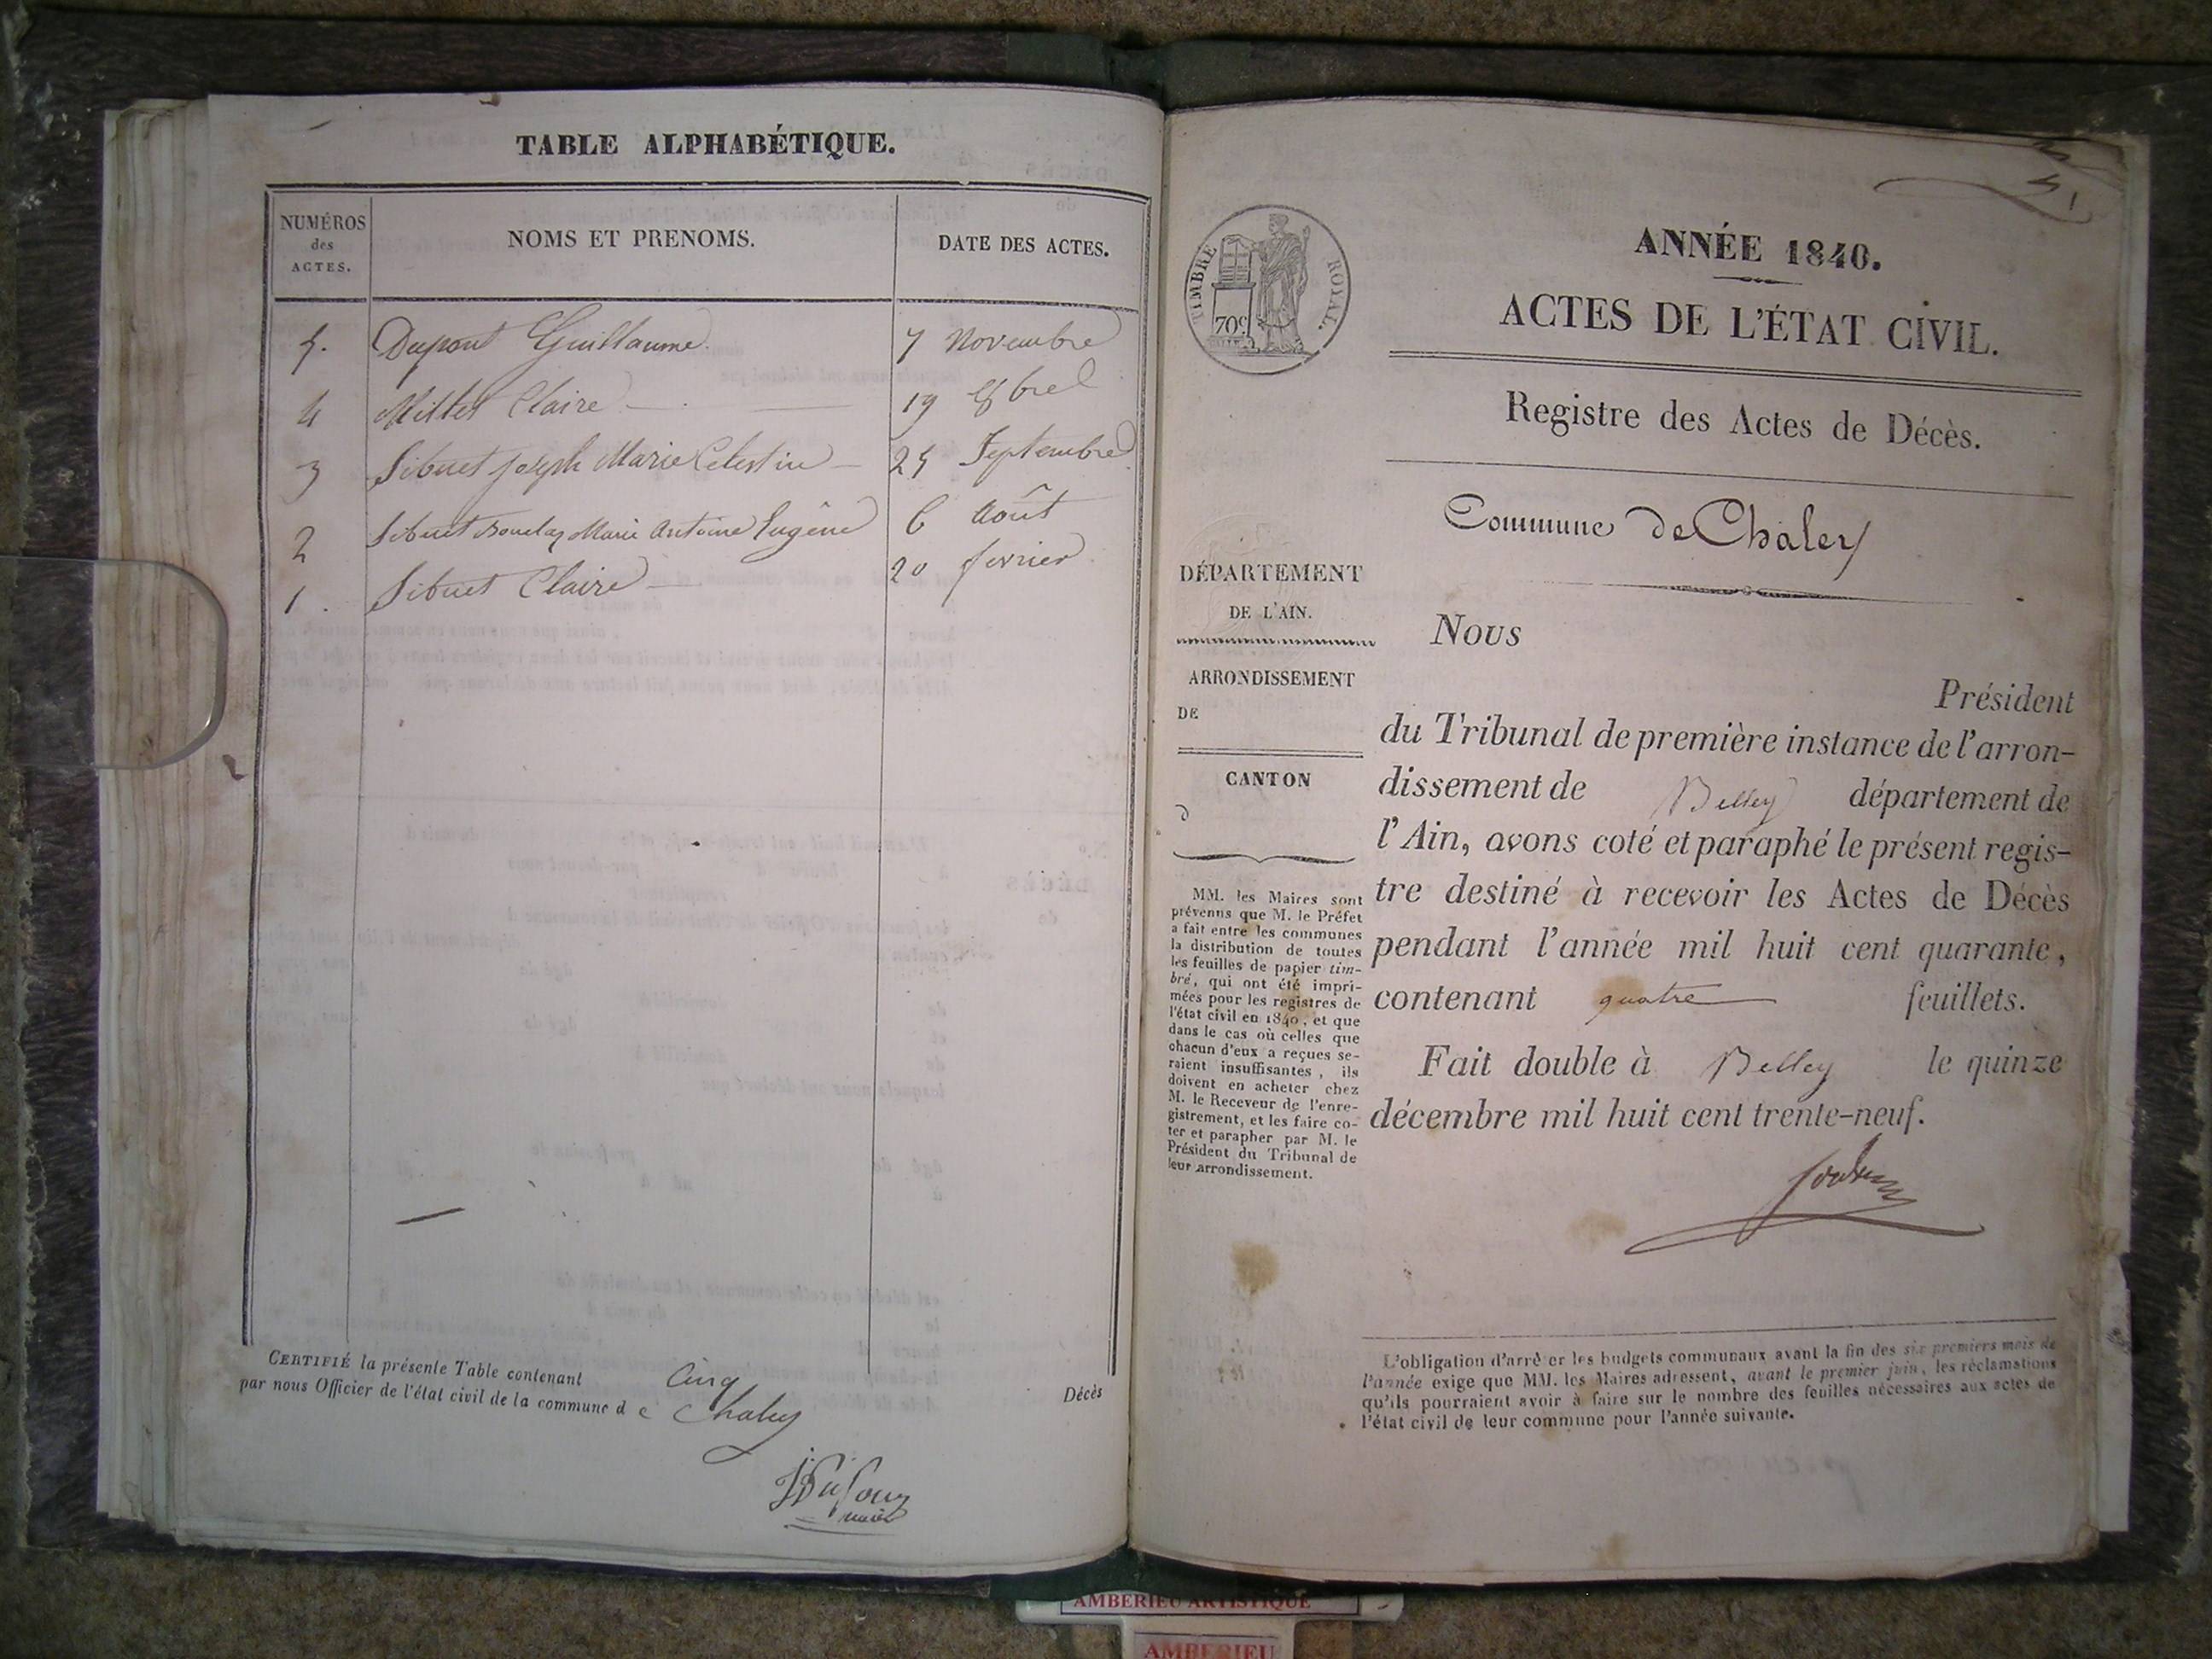 TABLE ALPHABÉTIQUE.
NUMÉROS des ACTES. NOMS ET PRENOMS. DATE DES ACTES.
5. Dupont Guillaume. 7 Novembre
4 Millet Claire 19 8bre
3 Sibuet Joseph Marie Célestin 25 Septembre
2 Sibuet Marie Antoine Eugène 6 Août
1. Sibuet Claire 20 fevrier
CERTIFIÉ la présente Table contenant Cinq Décès
par nous Officier de l'état civil de la commune d e Chaley
JDufour
maire
TIMBRE ROYAL.
70c
ANNÉE 1840.
ACTES DE L'ÉTAT CIVIL.
Registre des Actes de Décès.
Commune de Chaley
DÉPARTEMENT
DE L'AIN.
ARRONDISSEMENT
DE
CANTON
d
MM. les Maires sont
prévenus que M. le Préfet
a fait entre les communes
la distribution de toutes
les feuilles de papier tim-
bré, qui ont été impri-
mées pour les registres de
l'état civil en 1840, et que
dans le cas où celles que
chacun d'eux a reçues se-
raient insuffisantes, ils
doivent en acheter chez
M. le Receveur de l'enre-
gistrement, et les faire co-
ter et parapher par M. le
Président du Tribunal de
leur arrondissement.
Nous
Président
du Tribunal de première instance de l'arron-
dissement de Belley département de
l'Ain, avons coté et paraphé le présent regis-
tre destiné à recevoir les Actes de Décès
pendant l'année mil huit cent quarante,
contenant quatre feuillets.
Fait double à Belley le quinze
décembre mil huit cent trente-neuf.
L'obligation d'arrê er les budgets communaux avant la fin des six premiers mois de
l'année exige que MM. les Maires adressent, avant le premier juin, les réclamations
qu'ils pourraient avoir à faire sur le nombre des feuilles nécessaires aux actes de
l'état civil de leur commune pour l'année suivante.
AMBERIEU ARTISTIQUE
AMBERIEU